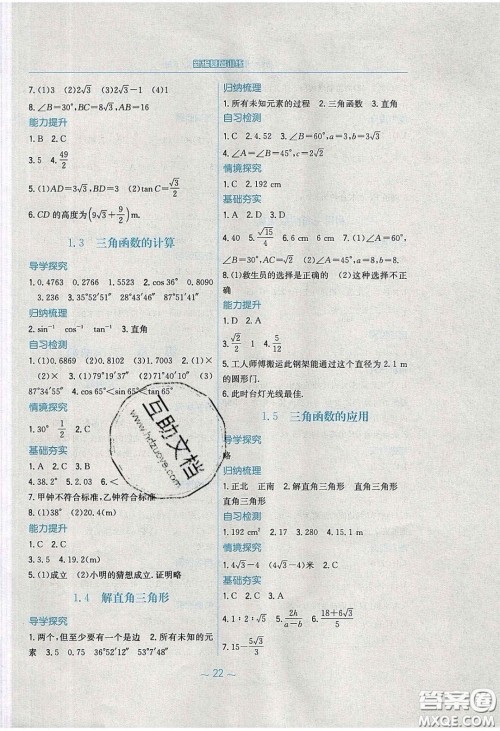 7.(1)3 (2)2√3 (3)2√3－1 (4)1
8.∠B＝30°,BC＝8√3,AB＝16√3
能力提升
1.B 2.C
3.5 4.49/2
5.(1)AD＝3√3,BD＝3 (2)tan C＝√3/2
6.CD的高度为(9√3＋9/2)m.
1.3 三角函数的计算
导学探究
1.0.4763 0.3106 1.5523 2.cos 36° 0.8090
3.0.236 35°52′51″ 28°18′44″ 87°51′41″
归纳梳理
2.sin⁻¹ cos⁻¹ tan⁻¹ 3.直角
自习检测
1.(1)0.6869 (2)0.8102 (3)1.7003 2.(1)×
(2)× 3.(1)79°19′37″ (2)71°40′10″ (3)
87°34′55″ 4.cos 65°＜sin 65°＜tan 65°
情境探究
1.30° 1/2 2.C
基础夯实
1.C 2.B 3.8 5.2.03 6.＜
7.甲钟不符合标准,乙钟符合标准
8.(1)36° (2)20.4(m)
能力提升
1.C 2.C
3.C 4.3.5 5.19.2(m)
6.(1)成立 (2)小明的猜想成立.证明略
1.4 解直角三角形
导学探究
1.两个,但至少要有一个是边 2.所有未知的元
素 3.5 0.75 36°52′ 53°7′ 53°8′
归纳梳理
1.所有未知元素的过程 2.三角函数 3.直角
自习检测
1.C 2.4.52 3.∠A＝60°,a＝3,b＝3√3
4.∠A＝∠B＝45°,b＝3√2
情境探究
1.C 2.192 cm
基础夯实
1.40 5.√15/4 6.(1)∠B＝60°,a＝8,b＝8√3
(2)∠A＝45°,b＝8,
7.(1)救生员的选择是正确的 (2)选择不正
确
能力提升
1.D 2.A
3.√2/2 1 4.5/12
5.工人师傅搬运此钢架能通过这个直径为2.1 m
的圆形门.
6.此时台灯光线最佳.
1.5 三角函数的应用
导学探究
略
归纳梳理
1.正北 正南 2.解直角三角形 直角三角形
直角三角形
自习检测
1.C 2.B 3.280 4.15.1 m
情境探究
1.4√3 2.2.7
基础夯实
1.C 2.C 3.A
4.1∶2∶√5 5.2h/(a－b) h/(a－b) 6.(18＋6√3)/5
7.15－5√3/3
～22～
互助文档
www.hdzuoye.com
答案圈
MXQE.COM